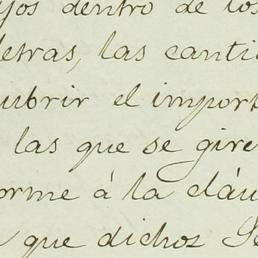 jos dentro de los
letras, las canti
ubrir el import
las que se gire
orme á la cláu
que dichos Se